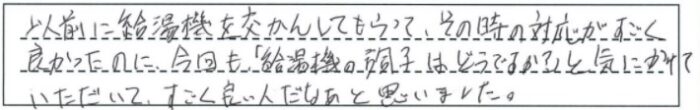 以前に給湯機を交かんしてもらって、その時の対応がすごく
良かったのに、今回も、「給湯機の調子はどうですか?」と気にかけて
いただいて、すごく良い人だなあと思いました。